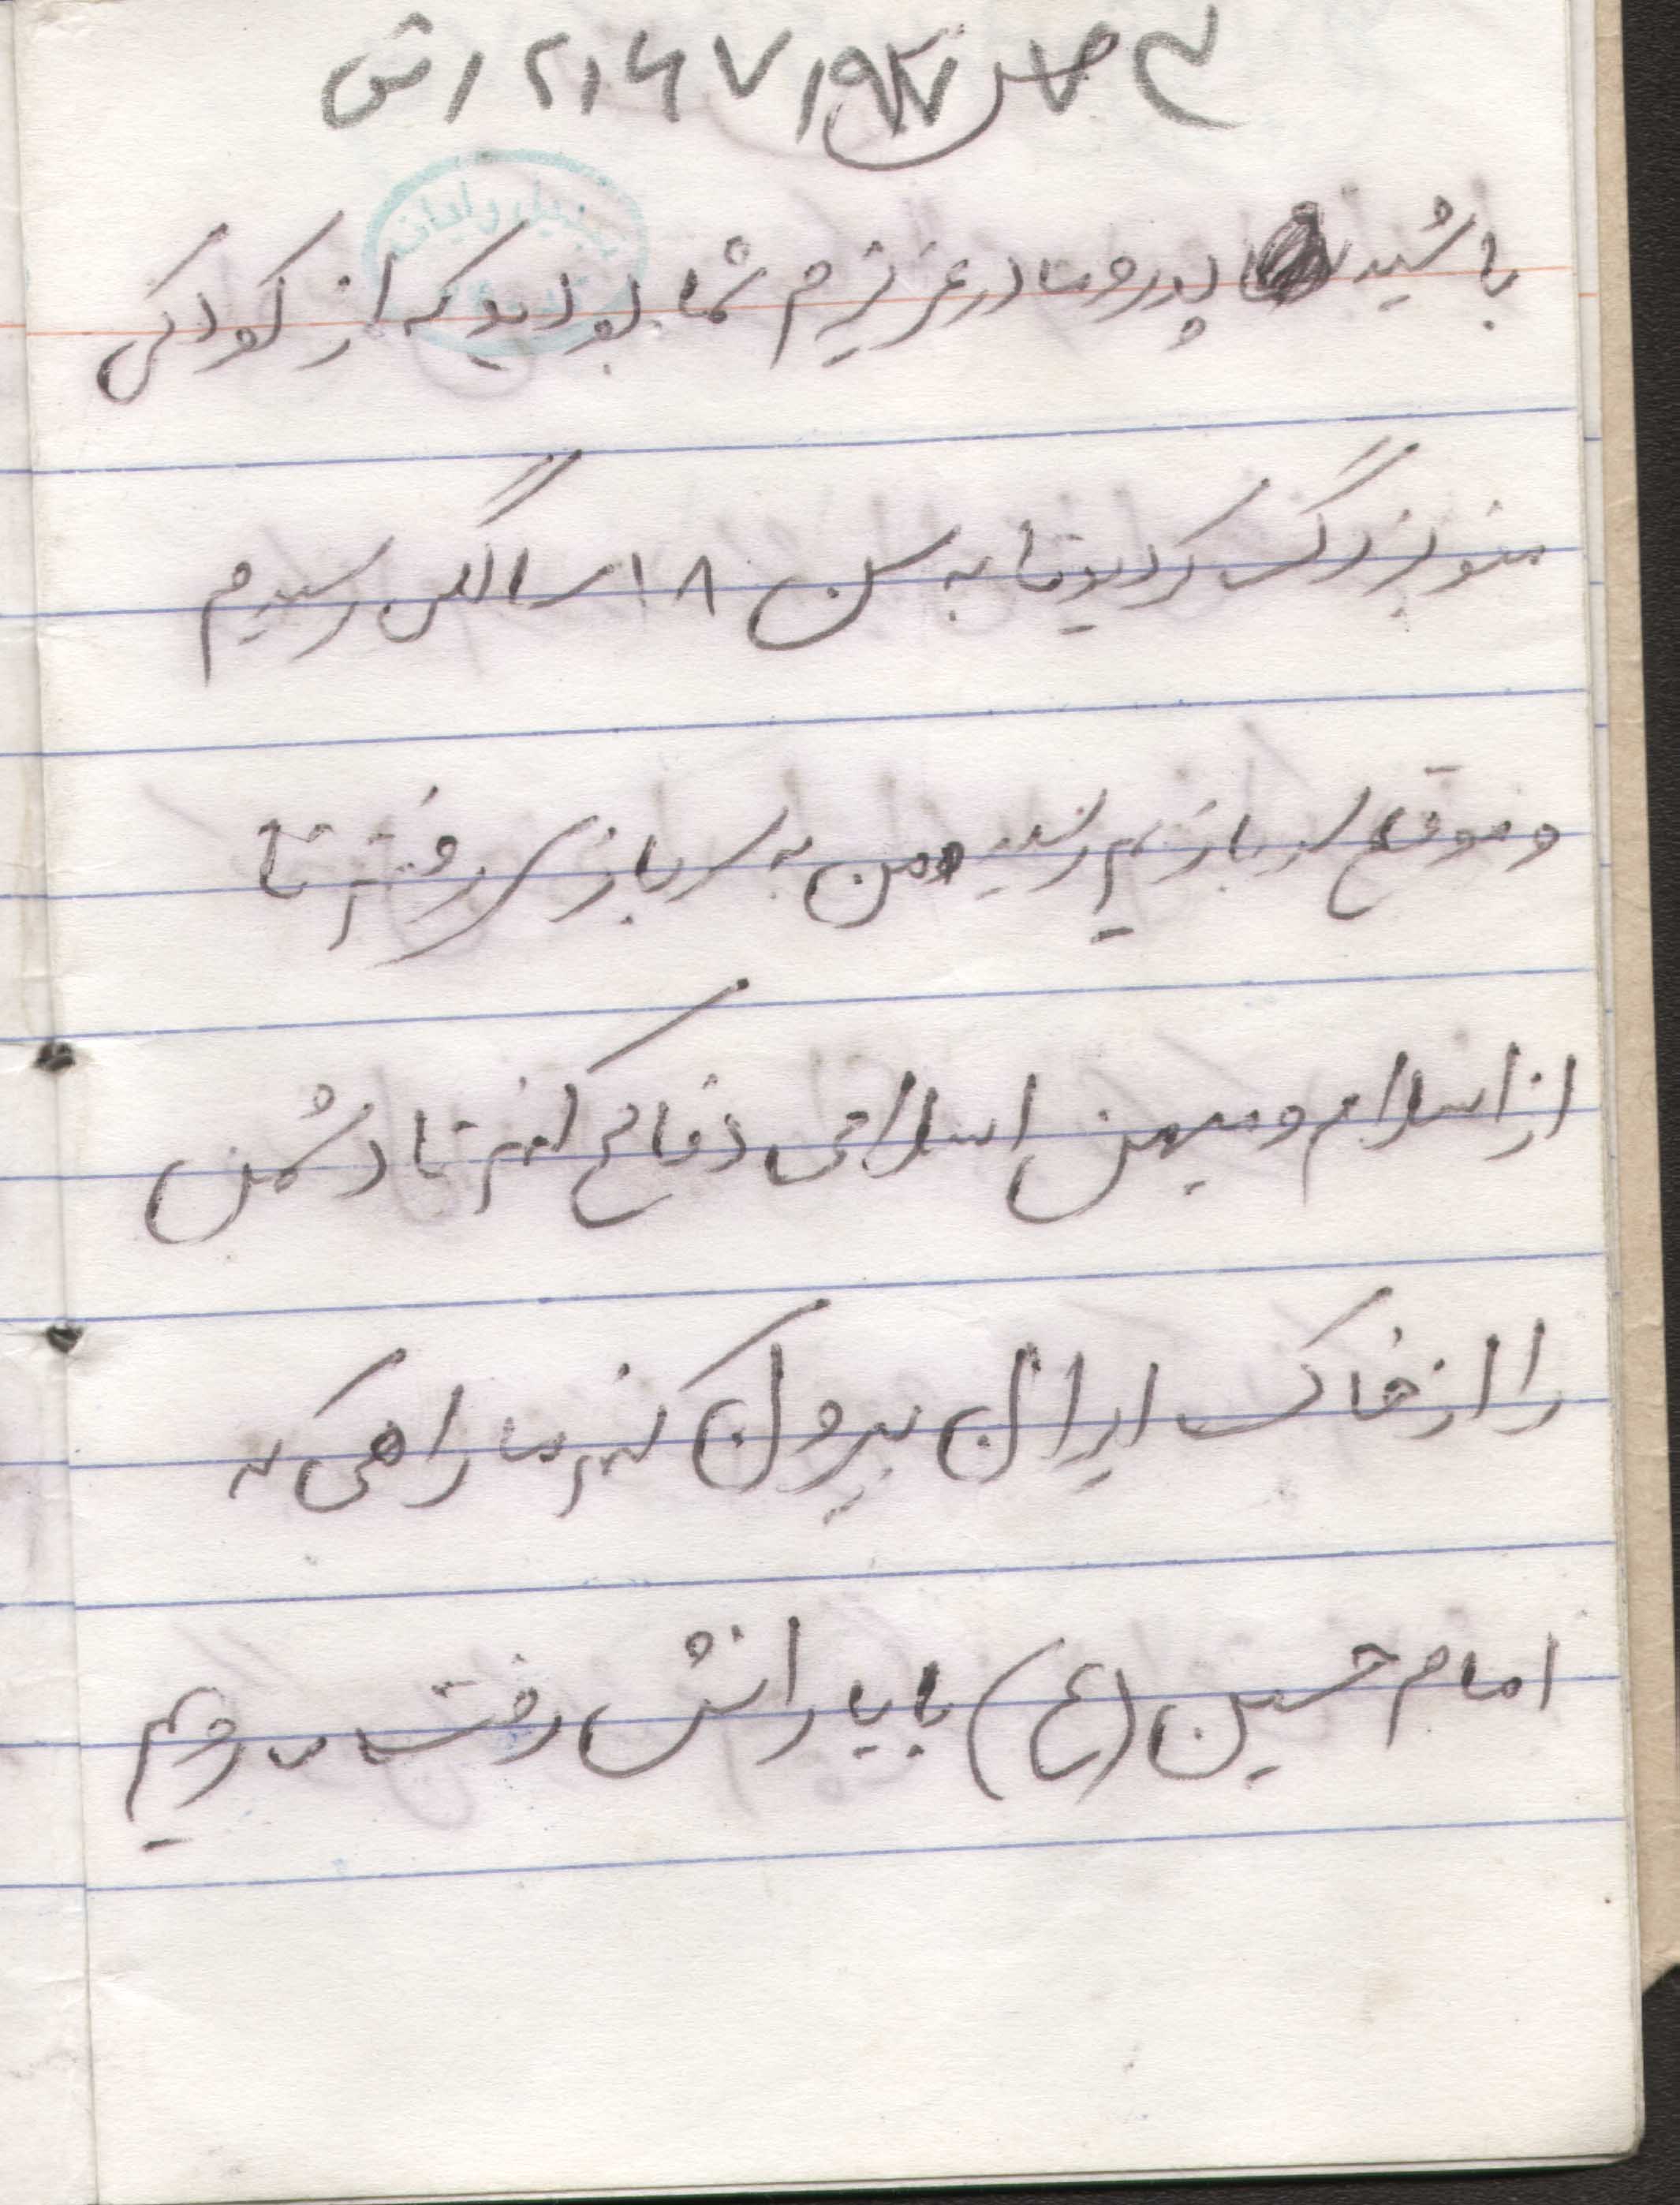 باشید پدر و مادر عزیزم شما بودید که از کودکی
منو بزرگ کردید تا به سن ۱۸ سالگی رسیدم
و موقع سربازیم رسید و من به سربازی رفتم تا
از اسلام و میهن اسلامی دفاع کنم تا دشمن
را از خاک ایران بیرون کنم ما راهی که
امام حسین (ع) با یارانش رفت مـ رویم